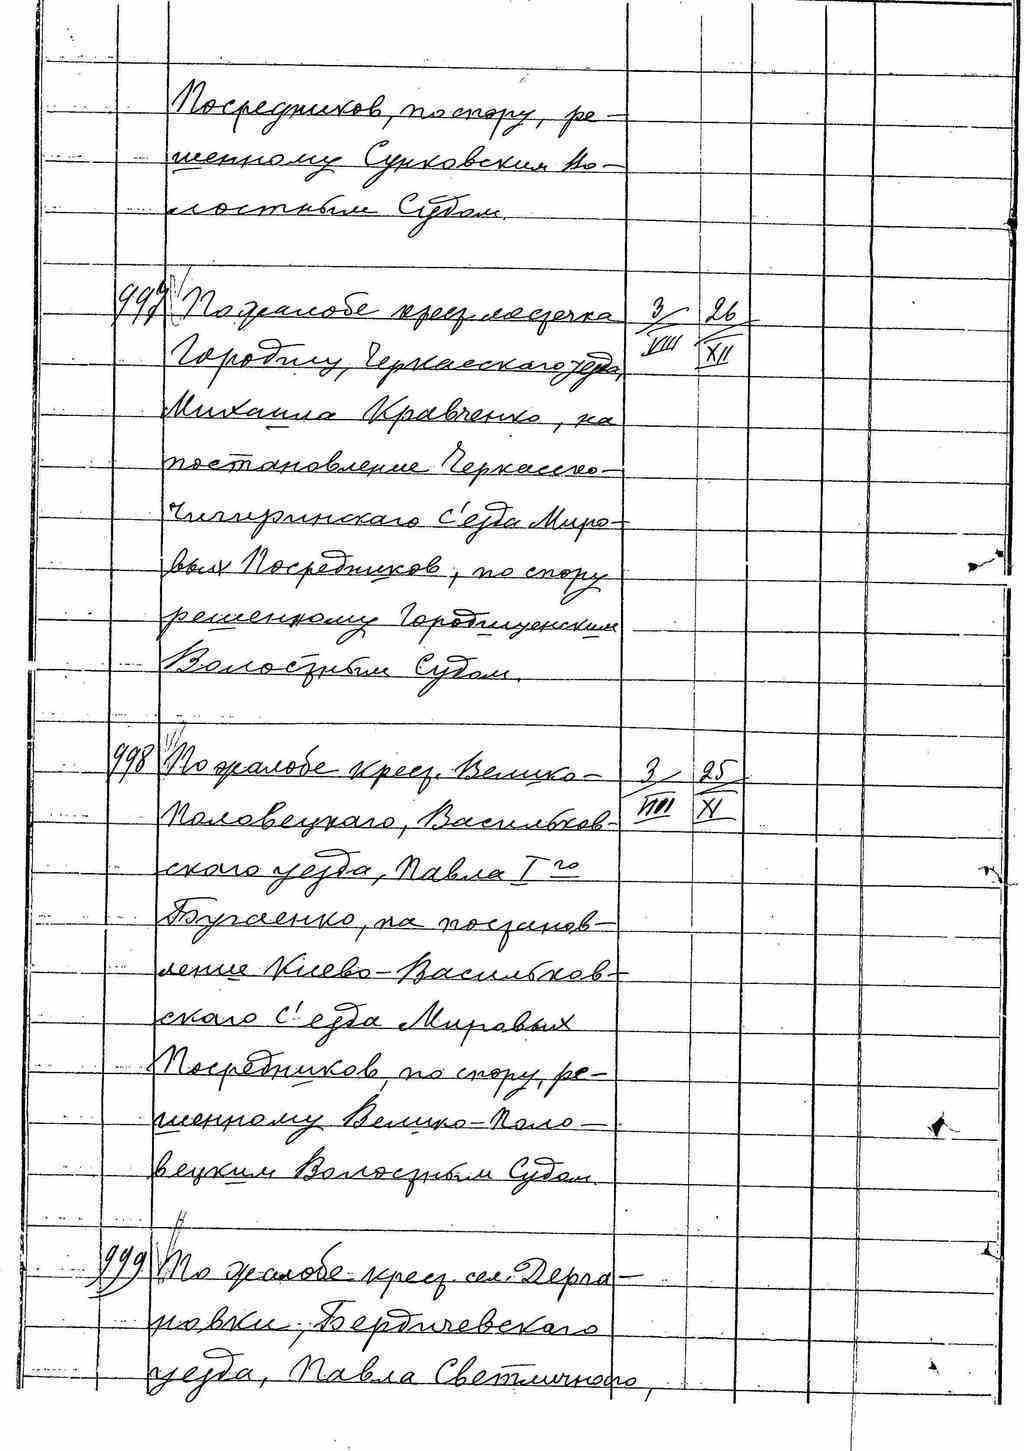 Посредников, по спору, ре-
шенному Сунковским Во-
лостным Судом.
997 По жалобе крест. местечка 3/VIII 26/XII
Городищ, Черкасскаго уезда,
Михаила Кравченко, на
постановление Черкасско-
Чигиринскаго с'езда Миро-
вых Посредников, по спору
решенному Городищенским
Волостным Судом.
998 По жалобе крест. Велико- 3/VIII 25/XI
Половецкаго, Васильков-
скаго уезда, Павла I го
Бугаенко, на постанов-
ление Киево-Васильков-
скаго с'езда Мировых
Посредников, по спору, ре-
шенному Велико-Поло-
вецким Волостным Судом.
999 По жалобе крест. сел. Дерга-
новки, Бердичевскаго
уезда, Павла Светличного,